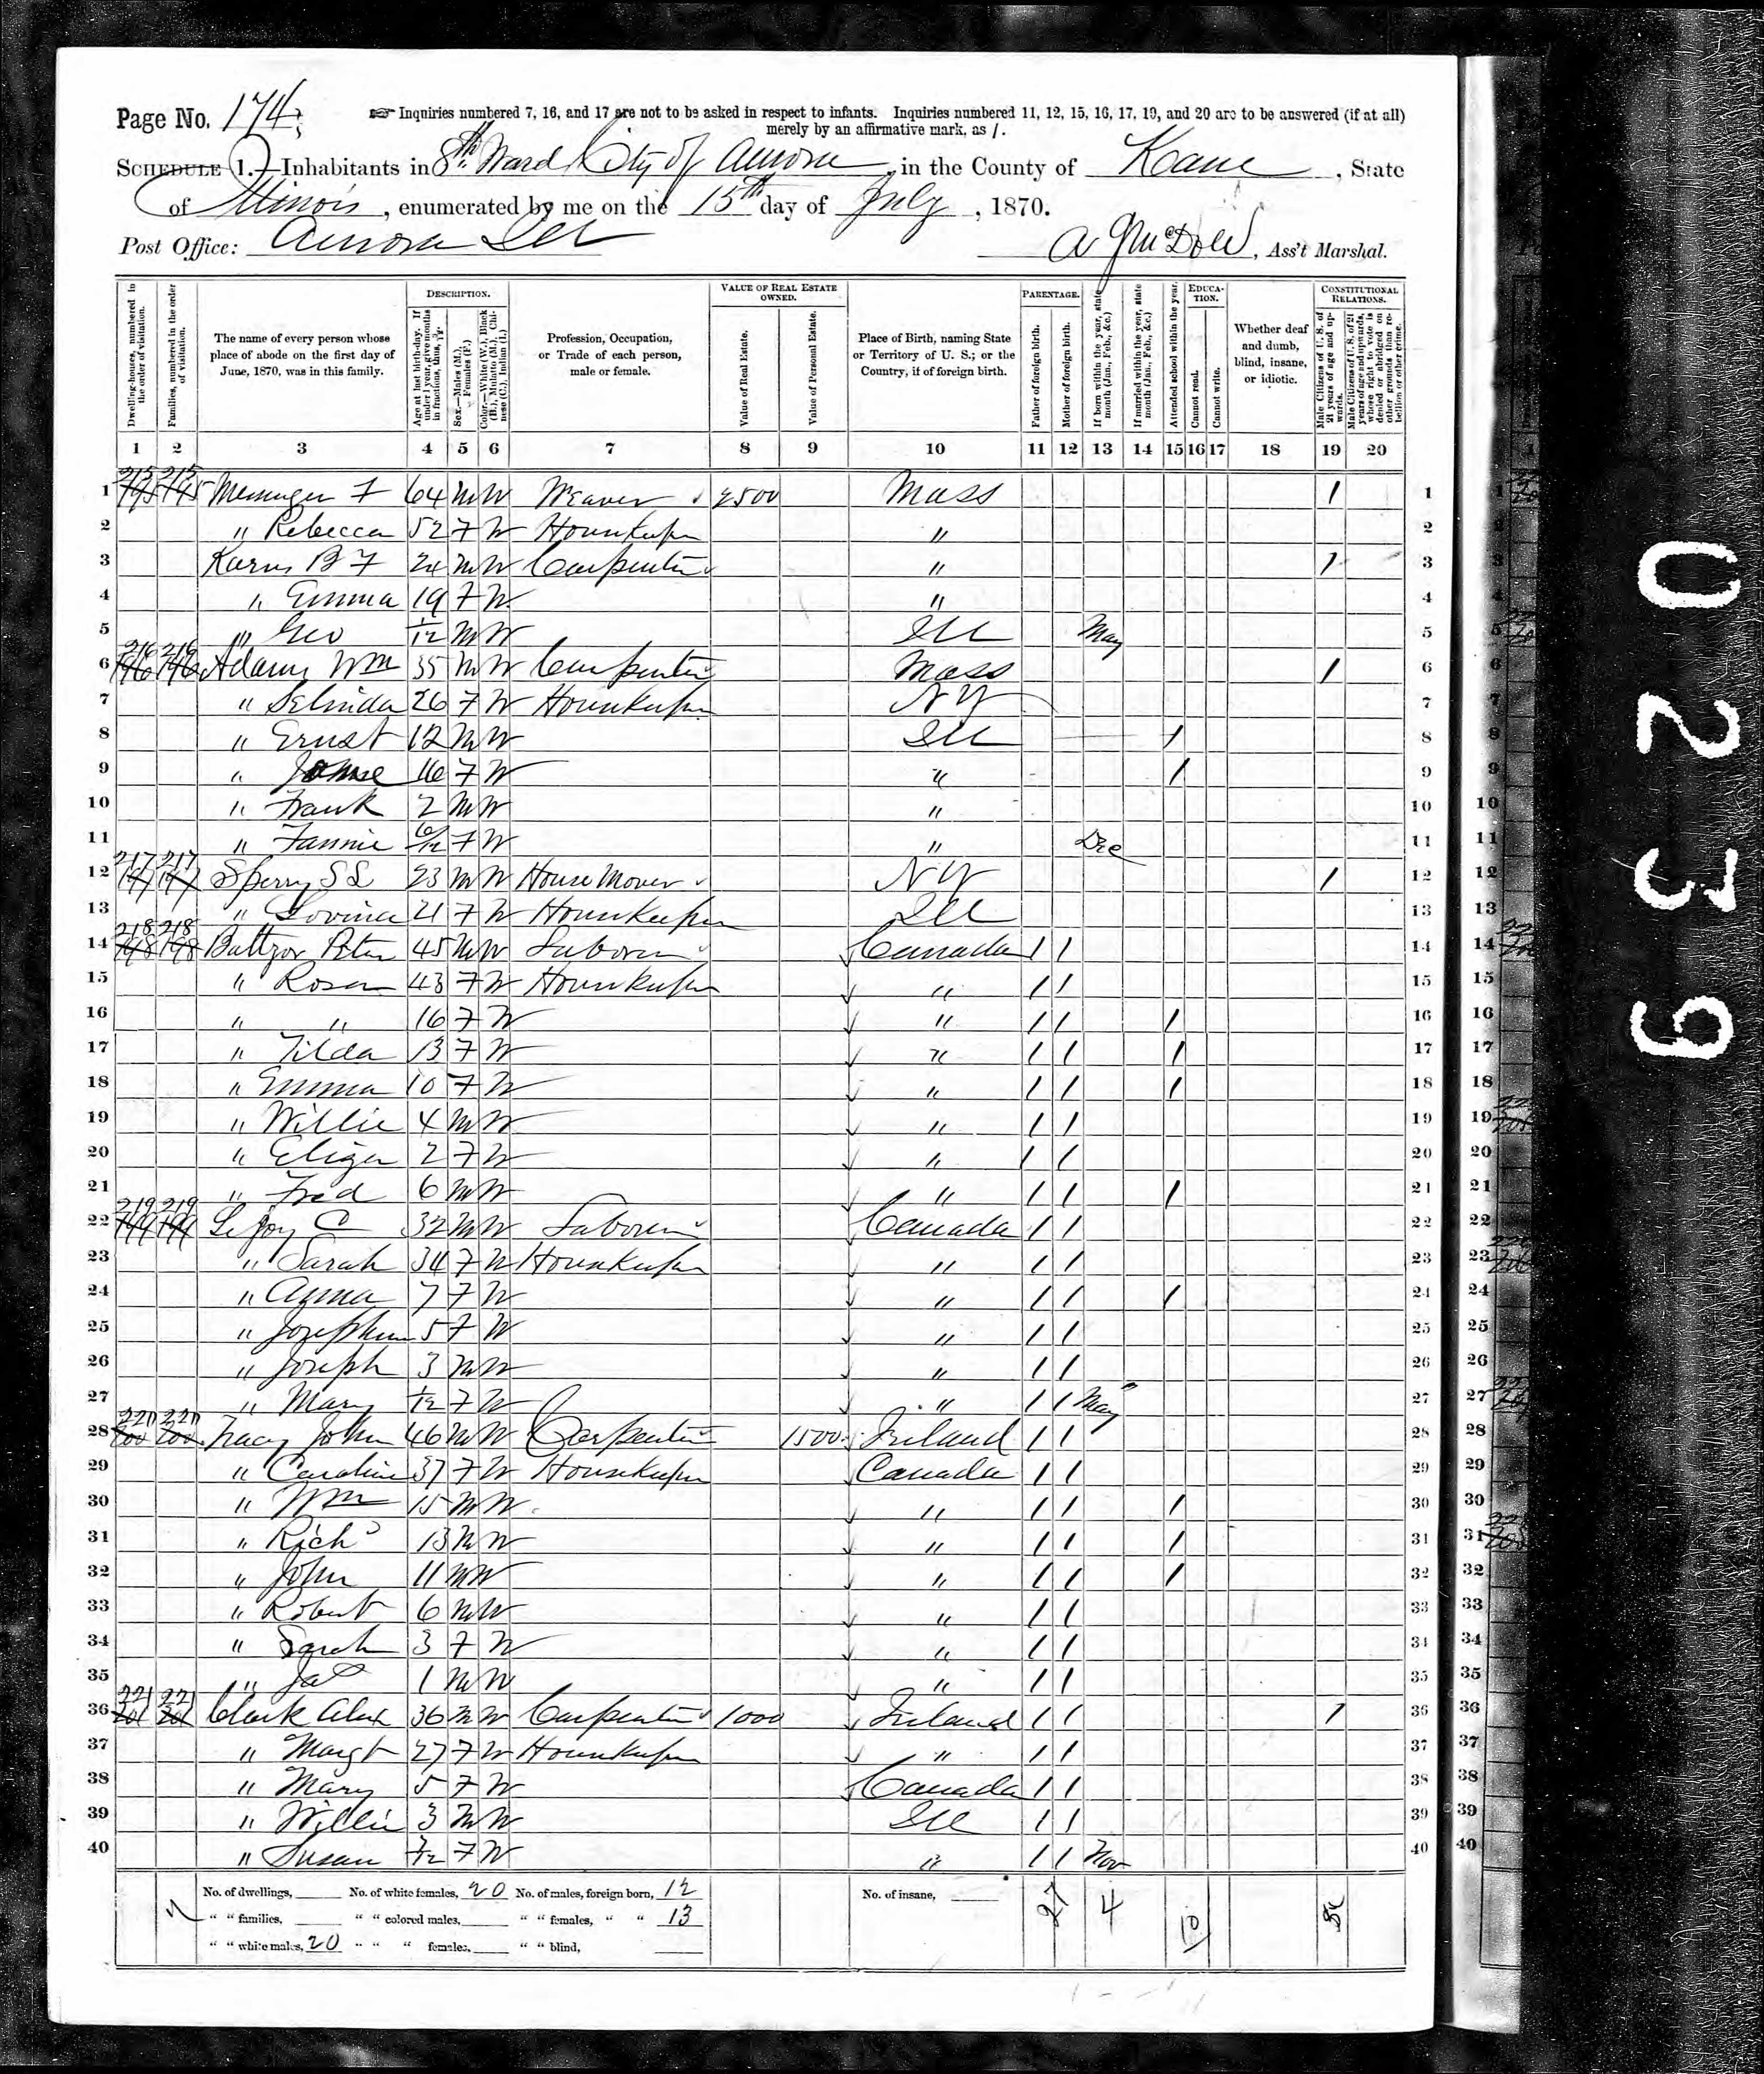 Page No. 174
☞ Inquiries numbered 7, 16, and 17 are not to be asked in respect to infants. Inquiries numbered 11, 12, 15, 16, 17, 19, and 20 are to be answered (if at all)
merely by an affirmative mark, as /.
SCHEDULE 1.—Inhabitants in 8th Ward City of Aurora, in the County of Kane, State
of Illinois, enumerated by me on the 15th day of July, 1870.
Post Office: Aurora Ill
McDole, Ass't Marshal.
Dwelling-houses, numbered in the order of visitation.
Families, numbered in the order of visitation.
The name of every person whose place of abode on the first day of June, 1870, was in this family.
DESCRIPTION.
Age at last birth-day. If under 1 year, give months in fractions, thus, 3/12.
Sex.—Males (M.), Females (F.)
Color.—White (W.), Black (B.), Mulatto (M.), Chinese (C.), Indian (I.)
Profession, Occupation, or Trade of each person, male or female.
VALUE OF REAL ESTATE OWNED.
Value of Real Estate.
Value of Personal Estate.
Place of Birth, naming State or Territory of U. S.; or the Country, if of foreign birth.
PARENTAGE.
Father of foreign birth.
Mother of foreign birth.
If born within the year, state month (Jan., Feb., &c.)
If married within the year, state month (Jan., Feb., &c.)
Attended school within the year.
EDUCATION.
Cannot read.
Cannot write.
Whether deaf and dumb, blind, insane, or idiotic.
CONSTITUTIONAL RELATIONS.
Male Citizens of U. S. of 21 years of age and upwards.
Male Citizens of U. S. of 21 years of age and upwards, whose right to vote is denied or abridged on other grounds than rebellion or other crime.
1 2 3 4 5 6 7 8 9 10 11 12 13 14 15 16 17 18 19 20
1 215 215 F 64 M W Weaver 2500 Mass / 1
2 " Rebecca 52 F W Housekeeper " 2
3 B F 24 M W Carpenter " / 3
4 " Emma 19 F W " 4
5 " Geo 1/12 M W Ill May 5
6 216 216 Adams Wm 35 M W Carpenter Mass / 6
7 " Selinda 26 F W Housekeeper NY 7
8 " Ernst 12 M W Ill / 8
9 " F W " / 9
10 " Frank 2 M W " 10
11 " Fannie 6/12 F W " Dec 11
12 217 217 Sperry S L 23 M W House Mover NY / 12
13 " Lovina 21 F W Housekeeper Ill 13
14 218 218 Peter 45 M W Laborer Canada / / 14
15 " Rosa 43 F W Housekeeper " / / 15
16 " " 16 F W " / / / 16
17 " Tilda 13 F W " / / / 17
18 " Emma 10 F W " / / / 18
19 " Willie 4 M W " / / 19
20 " Eliza 2 F W " / / 20
21 " Fred 6 M W " / / / 21
22 219 219 C 32 M W Laborer Canada / / 22
23 " Sarah 34 F W Housekeeper " / / 23
24 " Anna 7 F W " / / / 24
25 " Josephine 5 F W " / / 25
26 " Joseph 3 M W " / / 26
27 " Mary 1/12 F W " / / May 27
28 220 220 Tracy John 46 M W Carpenter 1500 Ireland / / 28
29 " Caroline 37 F W Housekeeper Canada / / 29
30 " Wm 15 M W " / / / 30
31 " Richd 13 M W " / / / 31
32 " John 11 M W " / / / 32
33 " Robert 6 M W " / / 33
34 " Sarah 3 F W " / / 34
35 " Jas 1 M W " / / 35
36 221 221 Clark Alex 36 M W Carpenter 1000 Ireland / / / 36
37 " Margt 27 F W Housekeeper " / / 37
38 " Mary 5 F W Canada / / 38
39 " Willie 3 M W Ill / / 39
40 " Susan 7/12 F W " / / Nov 40
No. of dwellings, No. of white females, 20 No. of males, foreign born, 12 No. of insane, 27 4 10
" " families, " " colored males, " " females, " " 13
" " white males, 20 " " " females, " " blind,
0239